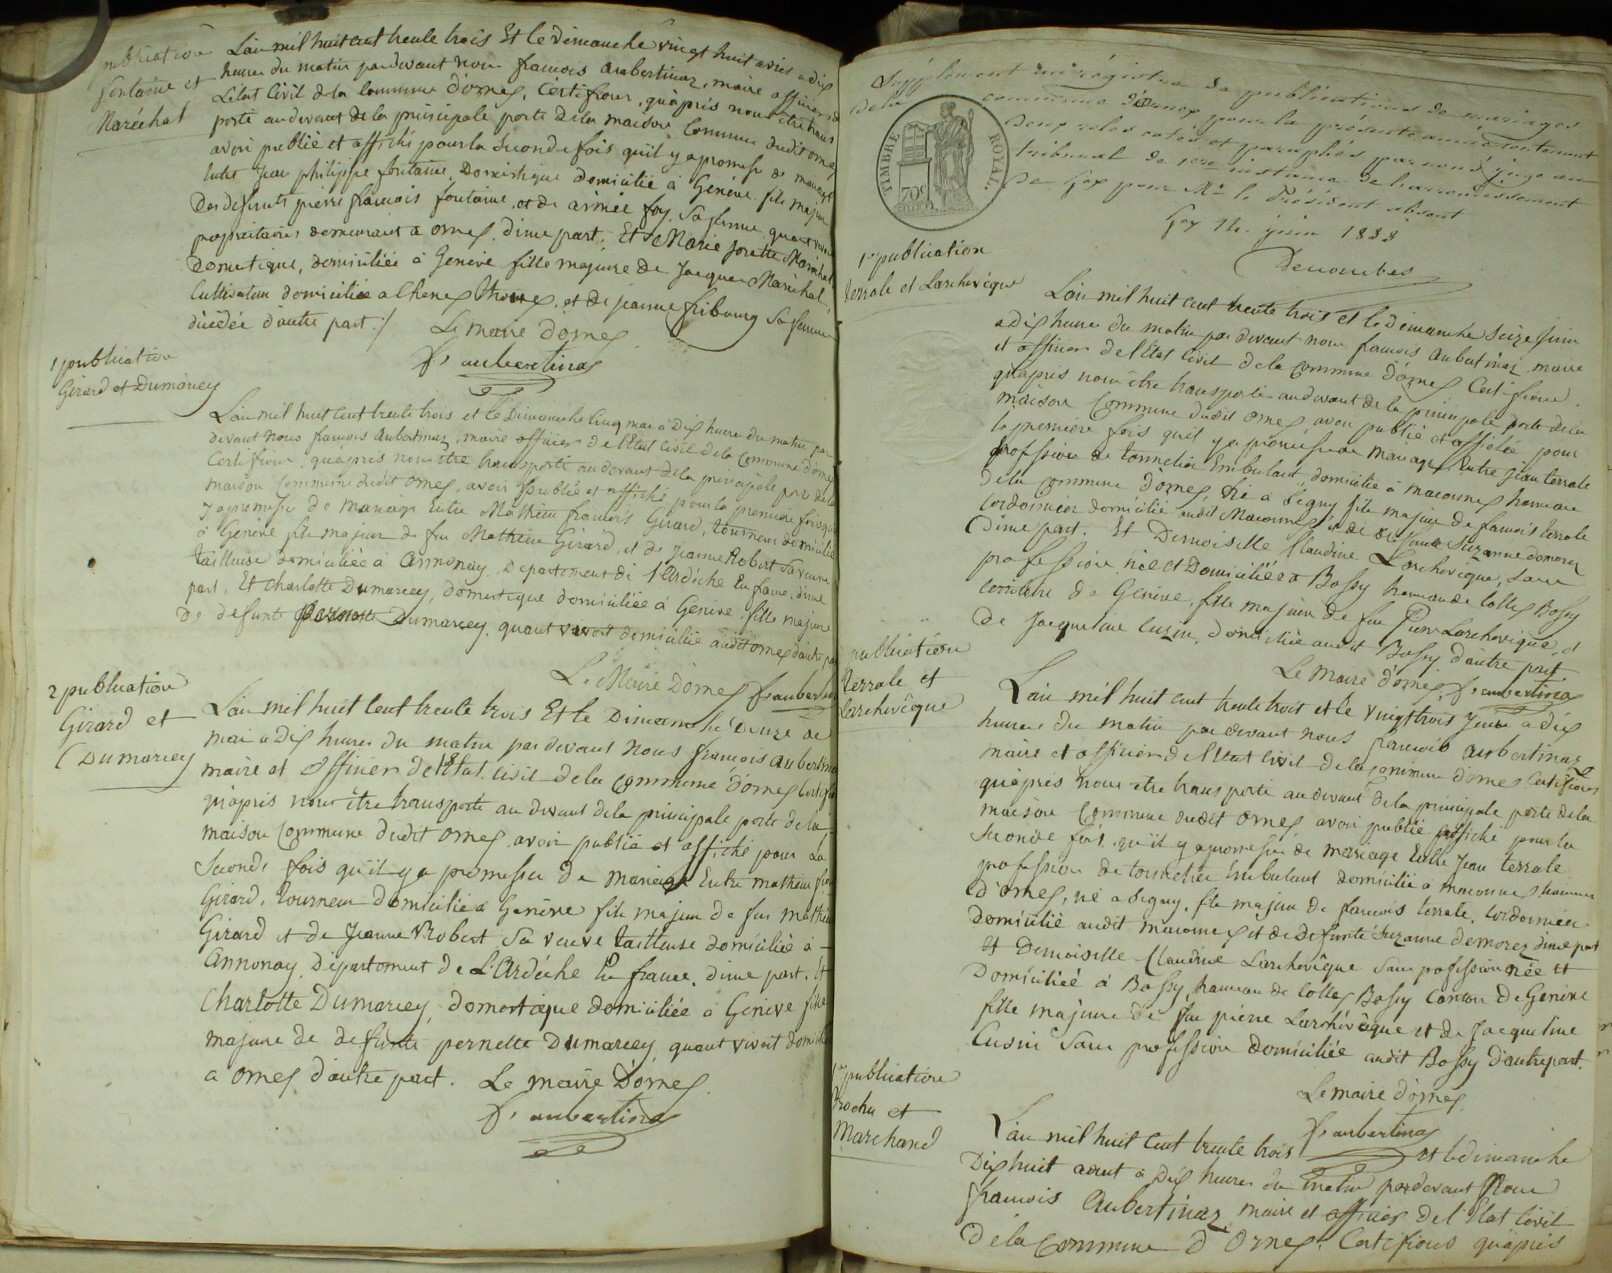 publication
fontaine et
Maréchal
L'an mil huit cent trente trois Et le dimanche vingt huit avril a dix
heures du matin pardevant nous francois aubertinaz, maire officier de
L'état Civil de la Commune d'ornex, Certifions, qu'après nous être trans
porté audevant de la principale porte de la maison Commune dudit ornex
avoir publié et affiché pour la Seconde fois qu'il y a promesse de mariage
Entre jean philippe fontaine, Domestique domicilié à Genève fils majeur
Des defunts pierre francois fontaine, et de aimée foy, Sa femme quant vivoit
propriétaires demeurant a ornex d'une part, Et Marie josette Maréchal
Domestique, domiciliée à Genève fille majeure de Jacques Maréchal,
Cultivateur domicilié a Chenex et de jeanne fribourg Sa femme
décédée d'autre part ./
Le maire d'ornex
fs aubertinaz
1 publication
Girard et Dumarcey
L'an mil huit Cent trente trois et le Dimanche Cinq mai a Dix heures du matin par
devant nous francois aubertinaz, maire officier de l'État Civil de la Commune d'ornex
Certifions, qu'après nous être transporté audevant de la principale porte de la
maison Commune dudit ornex, avoir publié et affiché pour la premiere fois qu'il
y a promesse de mariage Entre Mathieu francois Girard, tourneur domicilié
à Genève fils majeur de feu Mathieu Girard, et de Jeanne Robert Sa veuve
tailleuse domiciliée à annonay, Departement de l'ardèche En france, d'une
part, Et Charlotte Dumarcey, domestique domiciliée à Genève fille majeure
De defunte pernette Dumarcey, quant vivoit domiciliée audit ornex d'autre part
Le Maire D'ornex fs aubertinaz
2 publication
Girard et
Dumarcey
L'an mil huit Cent trente trois Et le Dimanche Douze de
mai a Dix heures Du matin pardevant nous francois aubertinaz
maire et officier de l'État Civil de la Commune d'ornex Certifions
qu'après nous être transporté audevant de la principale porte de la
maison Commune dudit ornex, avoir publié et affiché pour La
Seconde fois qu'il y a promesse De mariage Entre mathieu fois
Girard, tourneur Domicilié à Genève fils majeur de feu mathieu
Girard et de Jeanne Robert Sa veuve tailleuse domiciliée à
annonay, Département de L'Ardéche En france, d'une part, Et
Charlotte Dumarcey, domestique domiciliée à Genève fille
majeure de defunte pernette Dumarcey, quant vivoit domiciliée
a ornex d'autre part.
Le maire Dornex
fs aubertinaz
Supplement au régistre de publications de mariages
de la commune d'ornex pour la présente année contenant
deux roles cotés et paraphés par nous juge au
tribunal de 1ere instance de l'arrondissement
de Gex pour Mr le Président absent
Gex 14 juin 1833
TIMBRE ROYAL
70c
1re publication
terrale et Larchevêque
L'an mil huit cent trente trois et le dimanche Seize Juin
a dix heures du matin pardevant nous francois aubertinaz, maire
et officier de l'État Civil de la Commune d'ornex Certifions.
qu'après nous être transporté audevant de la principale porte de la
maison Commune dudit ornex avoir publié et affiché pour
la premiere fois qu'il y a promesse de mariage Entre jean terrale
profession de tonnelier Embulant, domicilié à maconnex hameau
de la Commune d'ornex, né a Ségny fils majeur de francois terrale
Cordonnier domicilié audit Maconnex et de defunte Suzanne demorez
d'une part. Et Demoiselle Claudine Larchevêque, Sans
profession, née et Domiciliée à Bossy hameau de Collex Bossy
Canton de Genève, fille majeure de feu Pierre Larchevêque, et
De Jacqueline Cusin, domiciliée audit Bossy d'autre part
Le Maire d'ornex fs aubertinaz
publication
terrale et
Larchevêque
L'an mil huit cent trente trois et le vingt trois Juin a dix
heures du matin pardevant nous francois aubertinaz
maire et officier de l'Etat Civil de la Commune d'ornex Certifions
qu'après nous être transporté audevant de la principale porte de la
maison Commune dudit ornex avoir publié affiché pour la
Seconde fois, qu'il y a promesse de mariage Entre Jean terrale
profession de tonnelier Embulant domicilié a maconnex hameau
D'ornex, né a Segny, fils majeur de francois terrale, Cordonnier
domicilié audit maconnex et de Defunte Suzanne demorez d'une part
Et Demoiselle Claudine Larchevêque Sans profession née et
Domiciliée à Bossy, hameau de Collex Bossy Canton De Genève
fille majeure de feu pierre Larchevêque et de Jacqueline
Cusin Sans profession domiciliée audit Bossy D'autre part.
Le maire d'ornex
fs aubertinaz
1re publication
Rochu et
Marchand
L'an mil huit Cent trente trois et le dimanche
Dix huit aout a Dix heures du matin pardevant Nous
francois Aubertinaz maire et officier de l'État Civil
De la Commune D'Ornex, Certifions qu'après